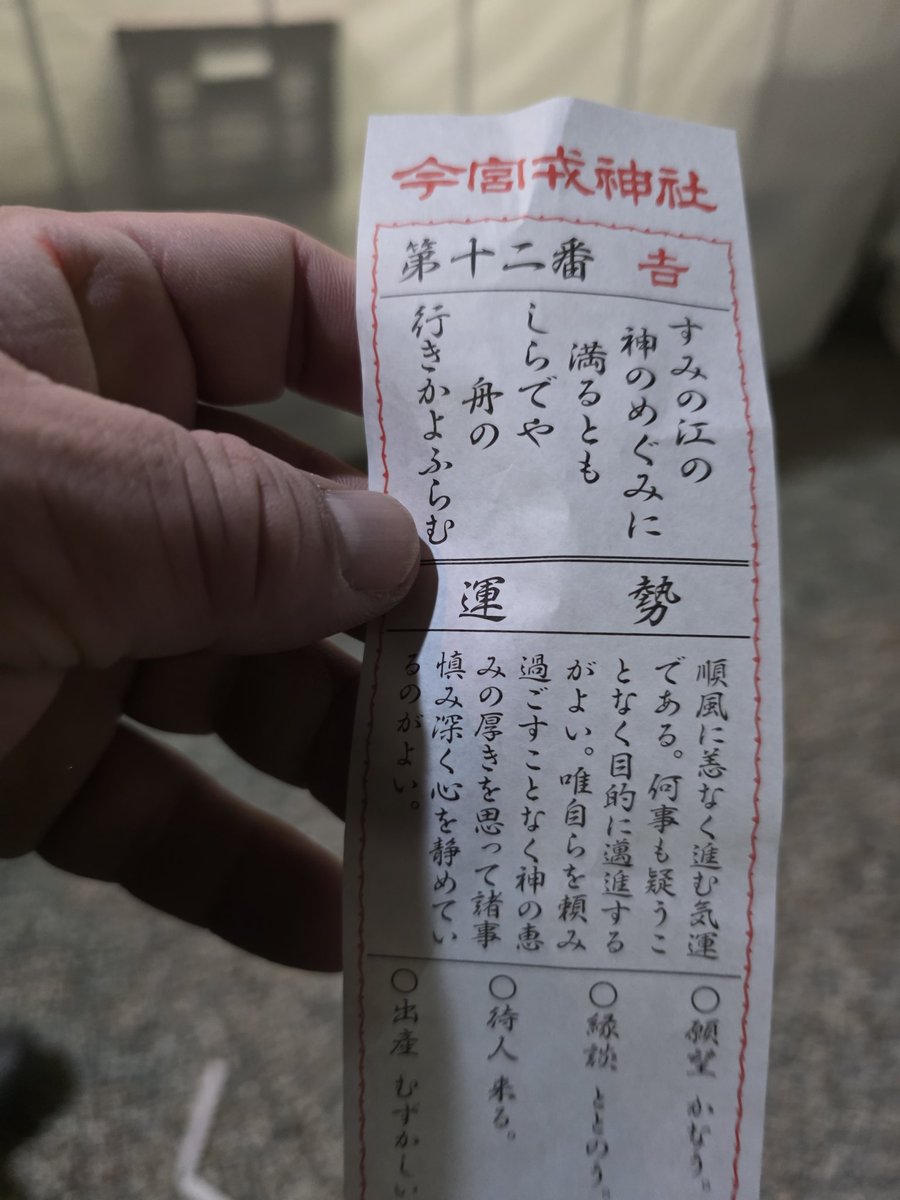 今宮戎神社
第十二番 吉
すみの江の
神のめぐみに
満るとも
しらでや
舟の
行きかよふらむ
運勢
順風に恙なく進む気運
である。何事も疑うこ
となく目的に邁進する
がよい。唯自らを頼み
過ごすことなく神の恵
みの厚きを思って諸事
慎み深く心を静めてい
るのがよい。
〇願望 かなう。
〇縁談 ととのう。
〇待人 来る。
〇出産 むずかしい